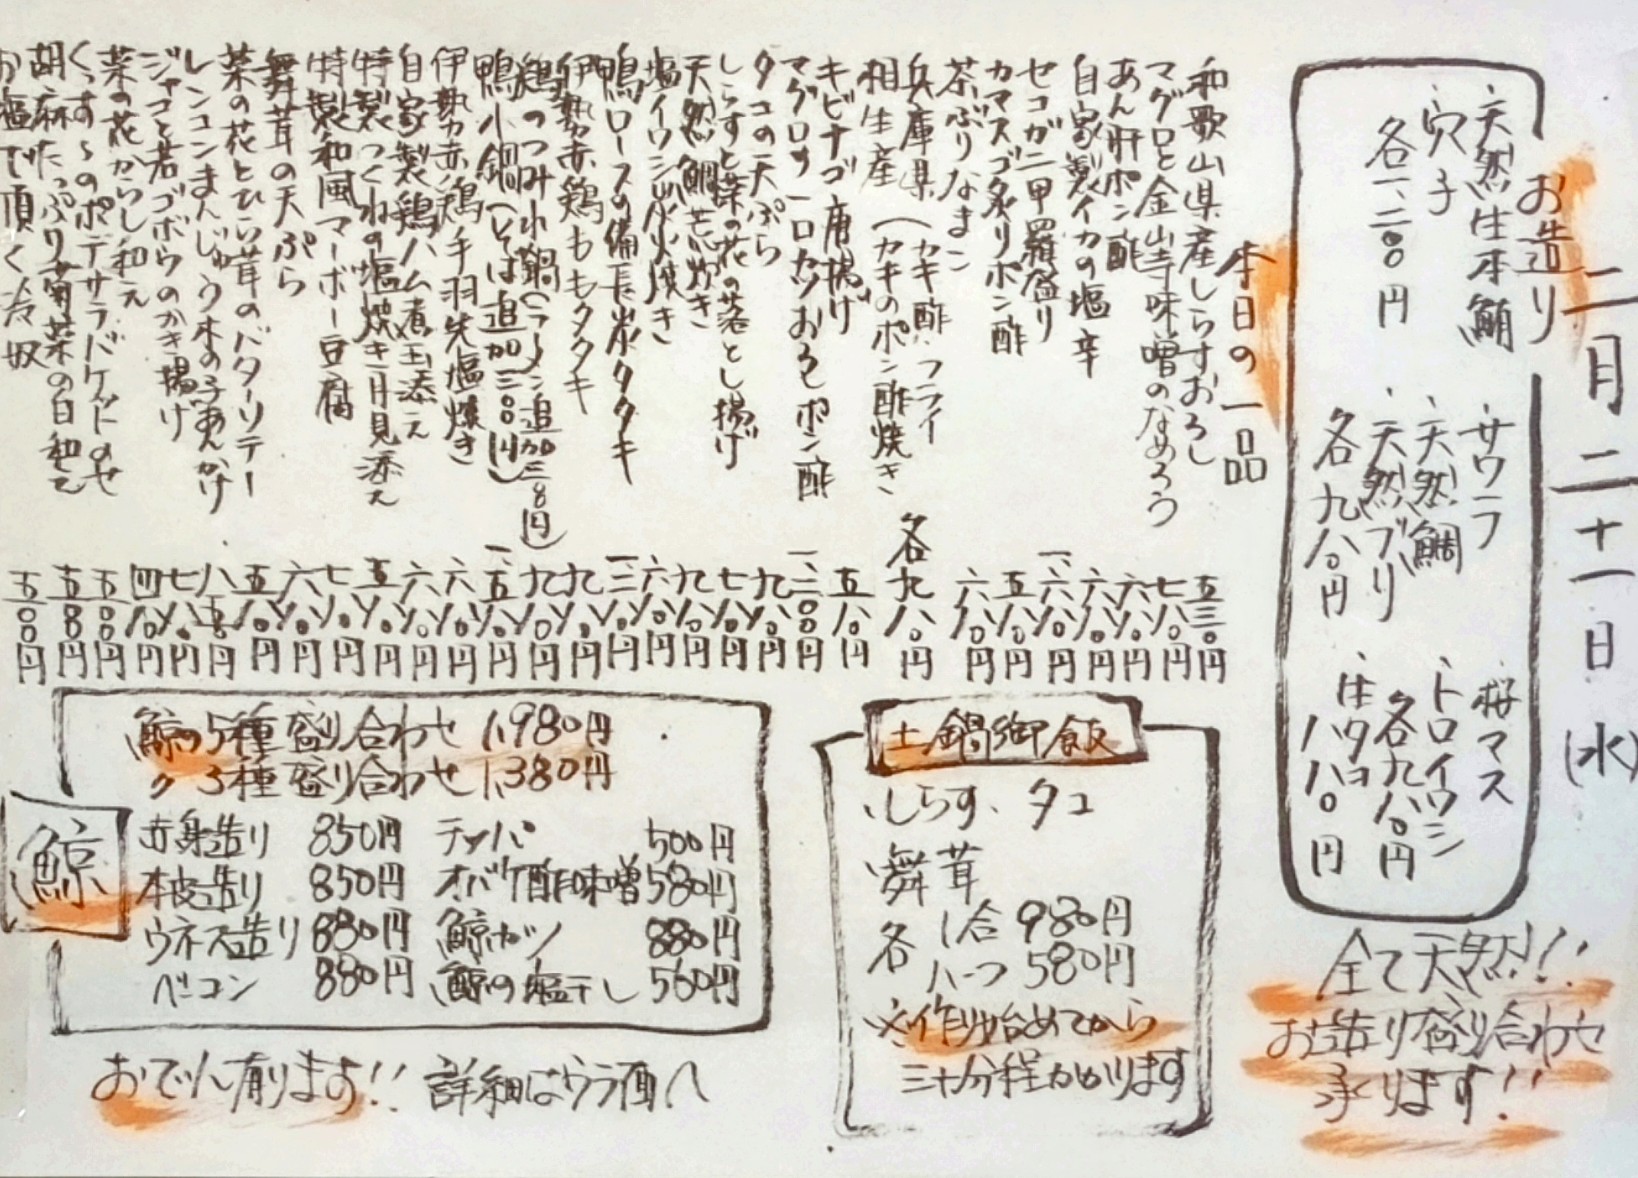 二月二十一日(水)
お造り
・天然生本鮪
・穴子
各一、二〇〇円
・サワラ
・天然鯛
・天然ブリ
各九八〇円
・桜マス
・トロイワシ
各九八〇円
・生タコ
八八〇円
全て天然!!
お造り盛り合わせ
承ります!!
本日の一品
和歌山県産しらすおろし 五三〇円
マグロと金山寺味噌のなめろう 七八〇円
あん肝ポン酢 六八〇円
自家製イカの塩辛 六八〇円
セコガニ甲羅盛り
カマスゴ炙りポン酢
茶ぶりなまこ 六八〇円
兵庫県相生産(カキ酢、フライ
(カキのポン酢焼き 各九八〇円
キビナゴ唐揚げ 五八〇円
マグロの一口カツおろしポン酢 一、二〇〇円
タコの天ぷら 九八〇円
しらすと葉の花の落とし揚げ 七八〇円
天然鯛荒炊き 九八〇円
塩イワシ炭火焼き 六八〇円
鴨ロースの備長炭タタキ
伊勢赤鶏ももタタキ 九八〇円
鶏のつみれ鍋(ラーメン追加三八〇円) 九八〇円
鴨小鍋(そば追加三〇〇円)
伊勢赤鶏手羽先塩焼き 六八〇円
自家製鶏ハム煮玉添え 六八〇円
特製つくねの塩焼き月見添え 五八〇円
特製和風マーボー豆腐 七八〇円
舞茸の天ぷら 六八〇円
菜の花とひら茸のバターソテー 五八〇円
レンコンまんじゅう木の子あんかけ 八五〇円
ジャコと若ゴボウのかき揚げ 七八〇円
菜の花からし和え 四八〇円
くっすぅのポテサラバケットのせ 五五〇円
胡麻たっぷり菊菜の白和え 五八〇円
お塩で頂く冷奴 五〇〇円
土鍋御飯
しらす、タコ
舞茸
各 1合 980円
ハーフ 580円
※作り始めてから
三十分程かかります
鯨
鯨の5種盛り合わせ 1,980円
〃 3種盛り合わせ 1,380円
赤身造り 850円
本皮造り 850円
ウネス造り 880円
ベーコン 880円
テッパ 500円
オバケ酢味噌 580円
鯨カツ 880円
鯨の塩干し 560円
おでん有ります!! 詳細はウラ面へ